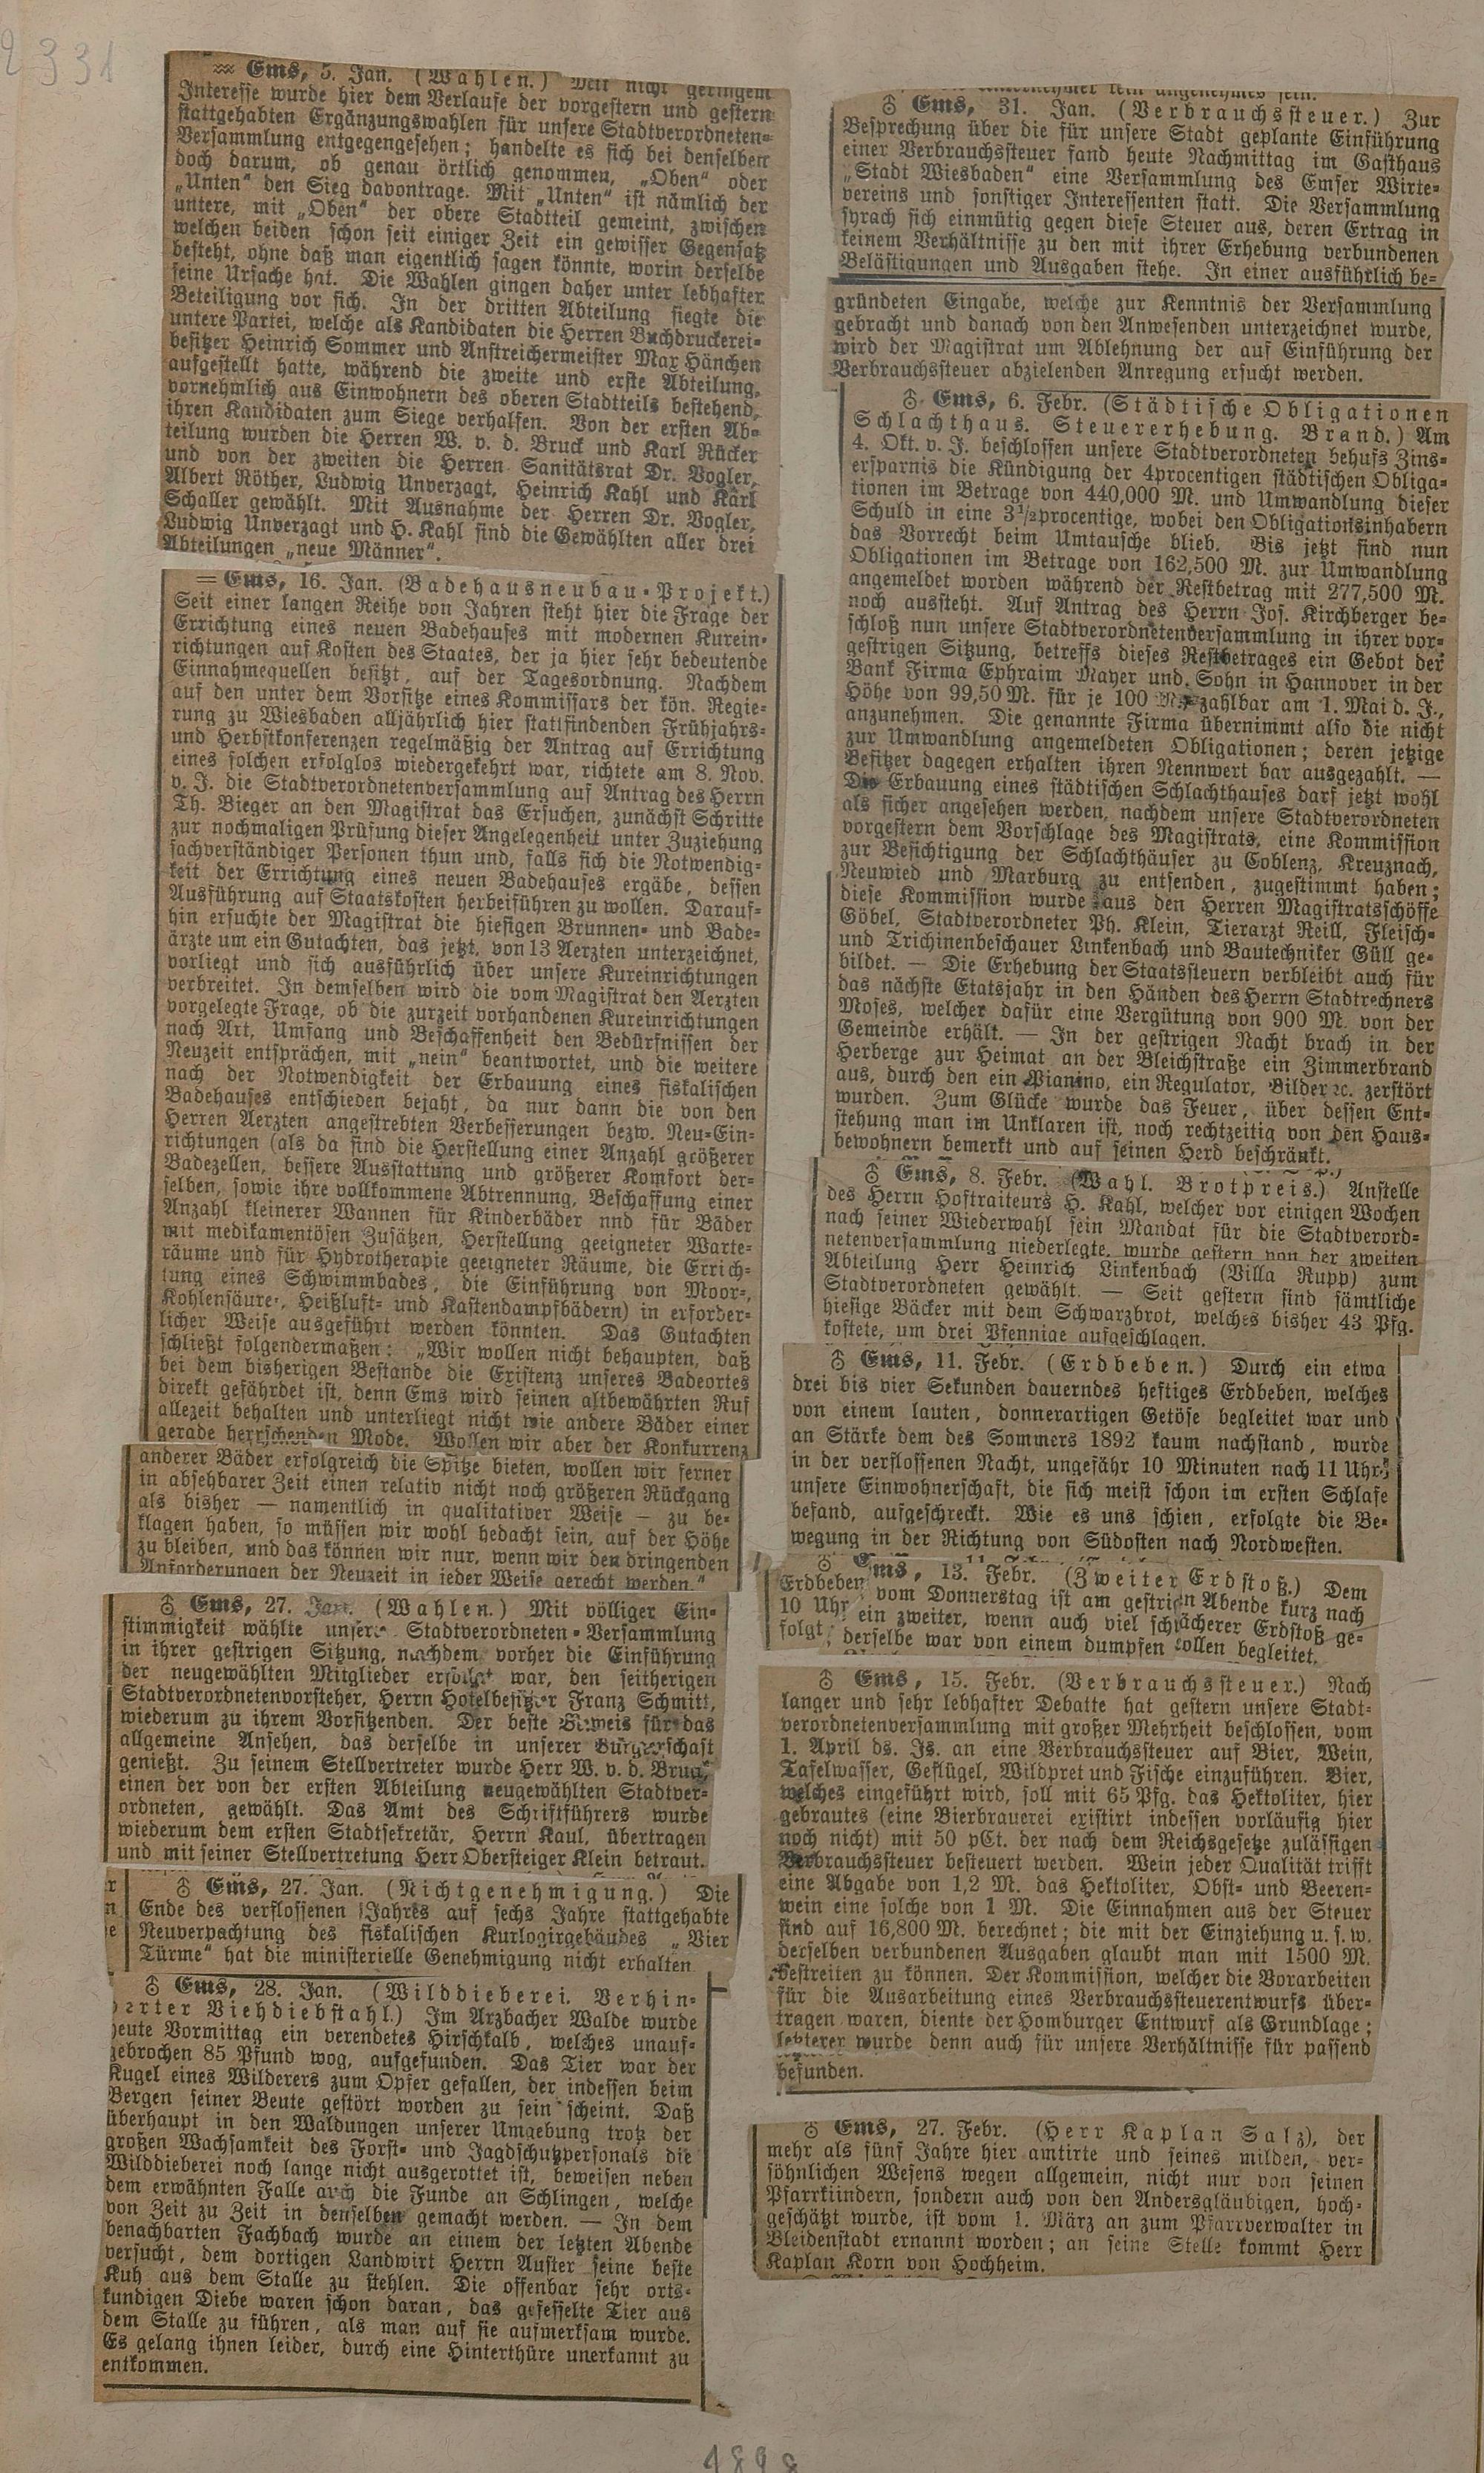 2331
Ems, 5. Jan. (Wahlen.) Mit nicht geringem
Interesse wurde hier dem Verlaufe der vorgestern und gestern
stattgehabten Ergänzungswahlen für unsere Stadtverordneten-
Versammlung entgegengesehen; handelte es sich bei denselben
doch darum, ob genau örtlich genommen, „Oben“ oder
„Unten“ den Sieg davontrage. Mit „Unten“ ist nämlich der
untere, mit „Oben“ der obere Stadtteil gemeint, zwischen
welchen beiden schon seit einiger Zeit ein gewisser Gegensatz
besteht, ohne daß man eigentlich sagen könnte, worin derselbe
seine Ursache hat. Die Wahlen gingen daher unter lebhafter
Beteiligung vor sich. In der dritten Abteilung siegte die
untere Partei, welche als Kandidaten die Herren Buchdruckerei-
besitzer Heinrich Sommer und Anstreichermeister Max Hänchen
aufgestellt hatte, während die zweite und erste Abteilung,
vornehmlich aus Einwohnern des oberen Stadtteils bestehend,
ihren Kandidaten zum Siege verhalfen. Von der ersten Ab-
teilung wurden die Herren W. v. d. Bruck und Karl Rücker
und von der zweiten die Herren Sanitätsrat Dr. Vogler,
Albert Röther, Ludwig Unverzagt, Heinrich Kahl und Karl
Schaller gewählt. Mit Ausnahme der Herren Dr. Vogler,
Ludwig Unverzagt und H. Kahl sind die Gewählten aller drei
Abteilungen „neue Männer“.
= Ems, 16. Jan. (Badehausneubau-Projekt.)
Seit einer langen Reihe von Jahren steht hier die Frage der
Errichtung eines neuen Badehauses mit modernen Kurein-
richtungen auf Kosten des Staates, der ja hier sehr bedeutende
Einnahmequellen besitzt, auf der Tagesordnung. Nachdem
auf den unter dem Vorsitze eines Kommissars der kön. Regie-
rung zu Wiesbaden alljährlich hier stattfindenden Frühjahrs-
und Herbstkonferenzen regelmäßig der Antrag auf Errichtung
eines solchen erfolglos wiedergekehrt war, richtete am 8. Nov.
v. J. die Stadtverordnetenversammlung auf Antrag des Herrn
Th. Bieger an den Magistrat das Ersuchen, zunächst Schritte
zur nochmaligen Prüfung dieser Angelegenheit unter Zuziehung
sachverständiger Personen thun und, falls sich die Notwendig-
keit der Errichtung eines neuen Badehauses ergäbe, dessen
Ausführung auf Staatskosten herbeiführen zu wollen. Darauf-
hin ersuchte der Magistrat die hiesigen Brunnen- und Bade-
ärzte um ein Gutachten, das jetzt, von 13 Aerzten unterzeichnet,
vorliegt und sich ausführlich über unsere Kureinrichtungen
verbreitet. In demselben wird die vom Magistrat den Aerzten
vorgelegte Frage, ob die zurzeit vorhandenen Kureinrichtungen
nach Art, Umfang und Beschaffenheit den Bedürfnissen der
Neuzeit entsprächen, mit „nein“ beantwortet, und die weitere
nach der Notwendigkeit der Erbauung eines fiskalischen
Badehauses entschieden bejaht, da nur dann die von den
Herren Aerzten angestrebten Verbesserungen bezw. Neu-Ein-
richtungen (als da sind die Herstellung einer Anzahl größerer
Badezellen, bessere Ausstattung und größerer Komfort der-
selben, sowie ihre vollkommene Abtrennung, Beschaffung einer
Anzahl kleinerer Wannen für Kinderbäder nnd für Bäder
mit medikamentösen Zusätzen, Herstellung geeigneter Warte-
räume und für Hydrotherapie geeigneter Räume, die Errich-
tung eines Schwimmbades, die Einführung von Moor-,
Kohlensäure-, Heißluft- und Kastendampfbädern) in erforder-
licher Weise ausgeführt werden könnten. Das Gutachten
schließt folgendermaßen: „Wir wollen nicht behaupten, daß
bei dem bisherigen Bestande die Existenz unseres Badeortes
direkt gefährdet ist, denn Ems wird seinen altbewährten Ruf
allezeit behalten und unterliegt nicht wie andere Bäder einer
gerade herrschenden Mode. Wollen wir aber der Konkurrenz
anderer Bäder erfolgreich die Spitze bieten, wollen wir ferner
in absehbarer Zeit einen relativ nicht noch größeren Rückgang
als bisher — namentlich in qualitativer Weise — zu be-
klagen haben, so müssen wir wohl bedacht sein, auf der Höhe
zu bleiben, und das können wir nur, wenn wir den dringenden
Anforderungen der Neuzeit in jeder Weise gerecht werden.“
♁ Ems, 27. Jan. (Wahlen.) Mit völliger Ein-
stimmigkeit wählte unsere Stadtverordneten-Versammlung
in ihrer gestrigen Sitzung, nachdem vorher die Einführung
der neugewählten Mitglieder erfolgt war, den seitherigen
Stadtverordnetenvorsteher, Herrn Hotelbesitzer Franz Schmitt,
wiederum zu ihrem Vorsitzenden. Der beste Beweis für das
allgemeine Ansehen, das derselbe in unserer Bürgerschaft
genießt. Zu seinem Stellvertreter wurde Herr W. v. d. Bruck,
einen der von der ersten Abteilung neugewählten Stadtver-
ordneten, gewählt. Das Amt des Schriftführers wurde
wiederum dem ersten Stadtsekretär, Herrn Kaul, übertragen
und mit seiner Stellvertretung Herr Obersteiger Klein betraut.
♁ Ems, 27. Jan. (Nichtgenehmigung.) Die
Ende des verflossenen Jahres auf sechs Jahre stattgehabte
Neuverpachtung des fiskalischen Kurlogirgebäudes „Vier
Türme“ hat die ministerielle Genehmigung nicht erhalten.
♁ Ems, 28. Jan. (Wilddieberei. Verhin-
derter Viehdiebstahl.) Im Arzbacher Walde wurde
heute Vormittag ein verendetes Hirschkalb, welches unauf-
gebrochen 85 Pfund wog, aufgefunden. Das Tier war der
Kugel eines Wilderers zum Opfer gefallen, der indessen beim
Bergen seiner Beute gestört worden zu sein scheint. Daß
überhaupt in den Waldungen unserer Umgebung trotz der
großen Wachsamkeit des Forst- und Jagdschutzpersonals die
Wilddieberei noch lange nicht ausgerottet ist, beweisen neben
dem erwähnten Falle auch die Funde an Schlingen, welche
von Zeit zu Zeit in denselben gemacht werden. — In dem
benachbarten Fachbach wurde an einem der letzten Abende
versucht, dem dortigen Landwirt Herrn Auster seine beste
Kuh aus dem Stalle zu stehlen. Die offenbar sehr orts-
kundigen Diebe waren schon daran, das gefesselte Tier aus
dem Stalle zu führen, als man auf sie aufmerksam wurde.
Es gelang ihnen leider, durch eine Hinterthüre unerkannt zu
entkommen.
♁ Ems, 31. Jan. (Verbrauchssteuer.) Zur
Besprechung über die für unsere Stadt geplante Einführung
einer Verbrauchssteuer fand heute Nachmittag im Gasthaus
„Stadt Wiesbaden“ eine Versammlung des Emser Wirte-
vereins und sonstiger Interessenten statt. Die Versammlung
sprach sich einmütig gegen diese Steuer aus, deren Ertrag in
keinem Verhältnisse zu den mit ihrer Erhebung verbundenen
Belästigungen und Ausgaben stehe. In einer ausführlich be-
gründeten Eingabe, welche zur Kenntnis der Versammlung
gebracht und danach von den Anwesenden unterzeichnet wurde,
wird der Magistrat um Ablehnung der auf Einführung der
Verbrauchssteuer abzielenden Anregung ersucht werden.
♁ Ems, 6. Febr. (Städtische Obligationen
Schlachthaus. Steuererhebung. Brand.) Am
4. Okt. v. J. beschlossen unsere Stadtverordneten behufs Zins-
ersparnis die Kündigung der 4procentigen städtischen Obliga-
tionen im Betrage von 440,000 M. und Umwandlung dieser
Schuld in eine 3½procentige, wobei den Obligationsinhabern
das Vorrecht beim Umtausche blieb. Bis jetzt sind nun
Obligationen im Betrage von 162,500 M. zur Umwandlung
angemeldet worden während der Restbetrag mit 277,500 M.
noch aussteht. Auf Antrag des Herrn Jos. Kirchberger be-
schloß nun unsere Stadtverordnetenversammlung in ihrer vor-
gestrigen Sitzung, betreffs dieses Restbetrages ein Gebot der
Bank Firma Ephraim Mayer und Sohn in Hannover in der
Höhe von 99,50 M. für je 100 M. zahlbar am 1. Mai d. J.,
anzunehmen. Die genannte Firma übernimmt also die nicht
zur Umwandlung angemeldeten Obligationen; deren jetzige
Besitzer dagegen erhalten ihren Nennwert bar ausgezahlt. —
Die Erbauung eines städtischen Schlachthauses darf jetzt wohl
als sicher angesehen werden, nachdem unsere Stadtverordneten
vorgestern dem Vorschlage des Magistrats, eine Kommission
zur Besichtigung der Schlachthäuser zu Coblenz, Kreuznach,
Neuwied und Marburg zu entsenden, zugestimmt haben;
diese Kommission wurde aus den Herren Magistratsschöffe
Göbel, Stadtverordneter Ph. Klein, Tierarzt Reill, Fleisch-
und Trichinenbeschauer Linkenbach und Bautechniker Güll ge-
bildet. — Die Erhebung der Staatssteuern verbleibt auch für
das nächste Etatsjahr in den Händen des Herrn Stadtrechners
Moses, welcher dafür eine Vergütung von 900 M. von der
Gemeinde erhält. — In der gestrigen Nacht brach in der
Herberge zur Heimat an der Bleichstraße ein Zimmerbrand
aus, durch den ein Pianino, ein Regulator, Bilder ꝛc. zerstört
wurden. Zum Glücke wurde das Feuer, über dessen Ent-
stehung man im Unklaren ist, noch rechtzeitig von den Haus-
bewohnern bemerkt und auf seinen Herd beschränkt.
♁ Ems, 8. Febr. (Wahl. Brotpreis.) Anstelle
des Herrn Hoftraiteurs H. Kahl, welcher vor einigen Wochen
nach seiner Wiederwahl sein Mandat für die Stadtverord-
netenversammlung niederlegte, wurde gestern von der zweiten
Abteilung Herr Heinrich Linkenbach (Villa Rupp) zum
Stadtverordneten gewählt. — Seit gestern sind sämtliche
hiesige Bäcker mit dem Schwarzbrot, welches bisher 43 Pfg.
kostete, um drei Pfennige aufgeschlagen.
♁ Ems, 11. Febr. (Erdbeben.) Durch ein etwa
drei bis vier Sekunden dauerndes heftiges Erdbeben, welches
von einem lauten, donnerartigen Getöse begleitet war und
an Stärke dem des Sommers 1892 kaum nachstand, wurde
in der verflossenen Nacht, ungefähr 10 Minuten nach 11 Uhr,
unsere Einwohnerschaft, die sich meist schon im ersten Schlafe
befand, aufgeschreckt. Wie es uns schien, erfolgte die Be-
wegung in der Richtung von Südosten nach Nordwesten.
♁ Ems, 13. Febr. (Zweiter Erdstoß.) Dem
Erdbeben vom Donnerstag ist am gestrigen Abende kurz nach
10 Uhr ein zweiter, wenn auch viel schwächerer Erdstoß ge-
folgt; derselbe war von einem dumpfen Rollen begleitet.
♁ Ems, 15. Febr. (Verbrauchssteuer.) Nach
langer und sehr lebhafter Debatte hat gestern unsere Stadt-
verordnetenversammlung mit großer Mehrheit beschlossen, vom
1. April ds. Js. an eine Verbrauchssteuer auf Bier, Wein,
Tafelwasser, Geflügel, Wildpret und Fische einzuführen. Bier,
welches eingeführt wird, soll mit 65 Pfg. das Hektoliter, hier
gebrautes (eine Bierbrauerei existirt indessen vorläufig hier
noch nicht) mit 50 pCt. der nach dem Reichsgesetze zulässigen
Verbrauchssteuer besteuert werden. Wein jeder Qualität trifft
eine Abgabe von 1,2 M. das Hektoliter, Obst- und Beeren-
wein eine solche von 1 M. Die Einnahmen aus der Steuer
sind auf 16,800 M. berechnet; die mit der Einziehung u. s. w.
derselben verbundenen Ausgaben glaubt man mit 1500 M.
bestreiten zu können. Der Kommission, welcher die Vorarbeiten
für die Ausarbeitung eines Verbrauchssteuerentwurfs über-
tragen waren, diente der Homburger Entwurf als Grundlage;
letzterer wurde denn auch für unsere Verhältnisse für passend
befunden.
♁ Ems, 27. Febr. (Herr Kaplan Salz), der
mehr als fünf Jahre hier amtirte und seines milden, ver-
söhnlichen Wesens wegen allgemein, nicht nur von seinen
Pfarrkiindern, sondern auch von den Andersgläubigen, hoch-
geschätzt wurde, ist vom 1. März an zum Pfarrverwalter in
Bleidenstadt ernannt worden; an seine Stelle kommt Herr
Kaplan Korn von Hochheim.
1898